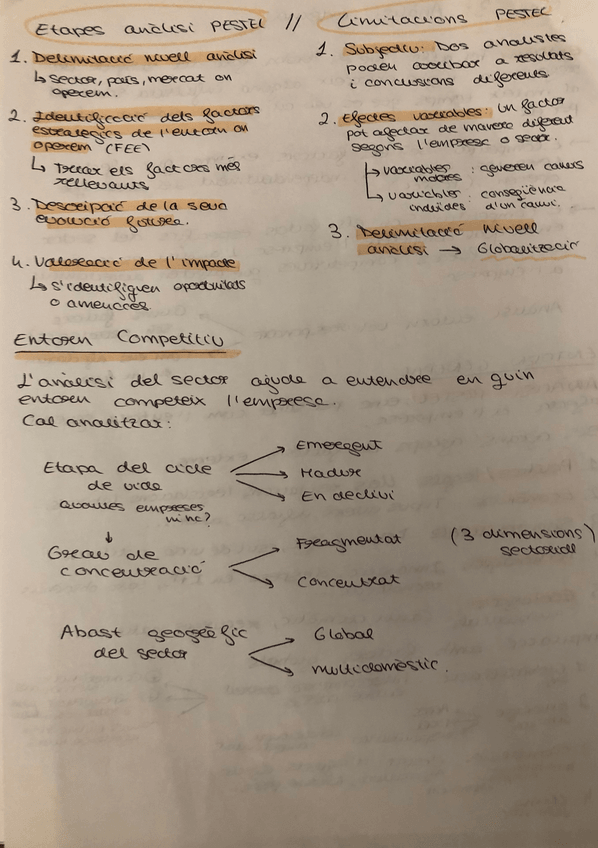 Etapes anàlisi PESTEL //
1. Delimitació nivell anàlisi
↳ sector, país, mercat on
operem.
2. Identificació dels factors
estratègics de l'entorn on
operem (FEE)
↳ Triar els factors més
rellevants
3. Descripció de la seva
evolució futura.
4. Valoració de l'impacte
↳ S'identifiquen oportunitats
o amenaces.
Limitacions PESTEL
1. Subjectiu: Dos analistes
poden arribar a resultats
i conclusions diferents
2. Efectes variables: Un factor
pot afectar de manera diferent
segons l'empresa o sector.
↳ variables motores : generen canvis
↳ variables induïdes : conseqüència
d'un canvi.
3. Delimitació nivell
anàlisi → Globalització
Entorn Competitiu
L'anàlisi del sector ajuda a entendre en quin
entorn competeix l'empresa.
Cal analitzar:
Etapa del cicle
de vida
→ Emergent
→ Madur
→ En declivi
Quantes empreses
hi ha?
↓
Grau de
concentració
→ Fragmentat
→ Concentrat
(3 dimensions)
sectorial
Abast geogràfic
del sector
→ Global
→ multidomèstic.